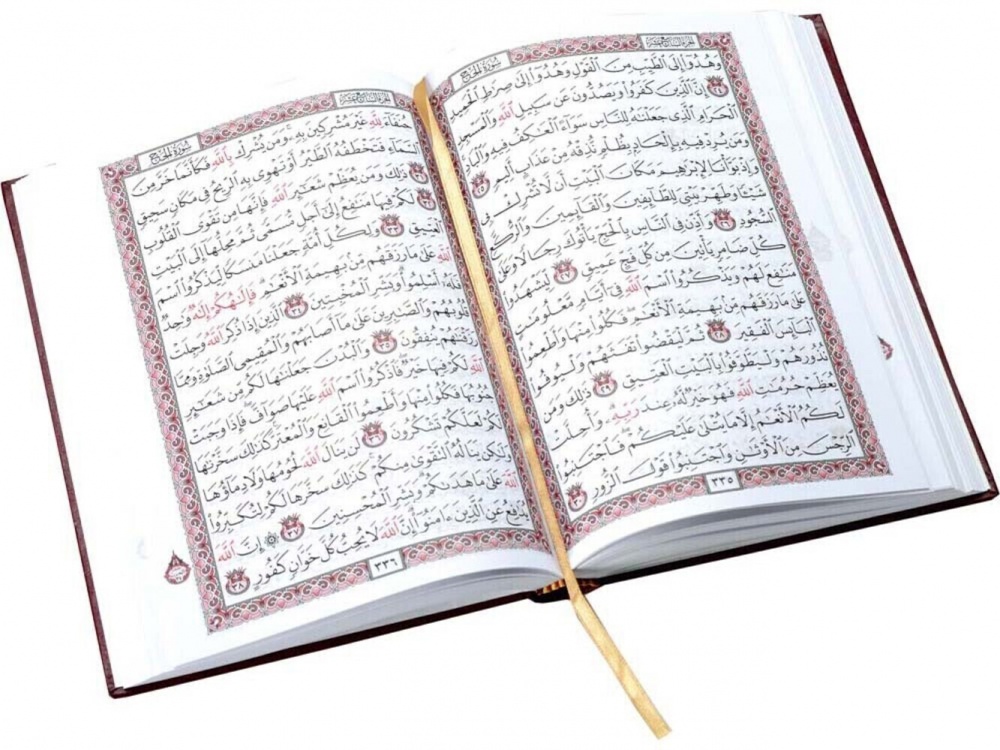 سُورَةُ الحَجِّ
الجُزْءُ السَّابِعَ عَشَرَ
وَهُدُوٓا۟ إِلَى ٱلطَّيِّبِ مِنَ ٱلْقَوْلِ وَهُدُوٓا۟ إِلَىٰ صِرَٰطِ ٱلْحَمِيدِ
٢٤ إِنَّ ٱلَّذِينَ كَفَرُوا۟ وَيَصُدُّونَ عَن سَبِيلِ ٱللَّهِ وَٱلْمَسْجِدِ
ٱلْحَرَامِ ٱلَّذِى جَعَلْنَٰهُ لِلنَّاسِ سَوَآءً ٱلْعَٰكِفُ فِيهِ وَٱلْبَادِ
وَمَن يُرِدْ فِيهِ بِإِلْحَادٍۭ بِظُلْمٍ نُّذِقْهُ مِنْ عَذَابٍ أَلِيمٍ ٢٥
وَإِذْ بَوَّأْنَا لِإِبْرَٰهِيمَ مَكَانَ ٱلْبَيْتِ أَن لَّا تُشْرِكْ بِى
شَيْـًٔا وَطَهِّرْ بَيْتِىَ لِلطَّآئِفِينَ وَٱلْقَآئِمِينَ وَٱلرُّكَّعِ
ٱلسُّجُودِ ٢٦ وَأَذِّن فِى ٱلنَّاسِ بِٱلْحَجِّ يَأْتُوكَ رِجَالًا وَعَلَىٰ
كُلِّ ضَامِرٍ يَأْتِينَ مِن كُلِّ فَجٍّ عَمِيقٍ ٢٧ لِّيَشْهَدُوا۟
مَنَٰفِعَ لَهُمْ وَيَذْكُرُوا۟ ٱسْمَ ٱللَّهِ فِىٓ أَيَّامٍ مَّعْلُومَٰتٍ
عَلَىٰ مَا رَزَقَهُم مِّنۢ بَهِيمَةِ ٱلْأَنْعَٰمِ فَكُلُوا۟ مِنْهَا وَأَطْعِمُوا۟
ٱلْبَآئِسَ ٱلْفَقِيرَ ٢٨ ثُمَّ لْيَقْضُوا۟ تَفَثَهُمْ وَلْيُوفُوا۟
نُذُورَهُمْ وَلْيَطَّوَّفُوا۟ بِٱلْبَيْتِ ٱلْعَتِيقِ ٢٩ ذَٰلِكَ وَمَن
يُعَظِّمْ حُرُمَٰتِ ٱللَّهِ فَهُوَ خَيْرٌ لَّهُۥ عِندَ رَبِّهِۦ وَأُحِلَّتْ
لَكُمُ ٱلْأَنْعَٰمُ إِلَّا مَا يُتْلَىٰ عَلَيْكُمْ فَٱجْتَنِبُوا۟
ٱلرِّجْسَ مِنَ ٱلْأَوْثَٰنِ وَٱجْتَنِبُوا۟ قَوْلَ ٱلزُّورِ ٣٠
٣٣٥
الجُزْءُ السَّابِعَ عَشَرَ
سُورَةُ الحَجِّ
حُنَفَآءَ لِلَّهِ غَيْرَ مُشْرِكِينَ بِهِۦ وَمَن يُشْرِكْ بِٱللَّهِ فَكَأَنَّمَا خَرَّ مِنَ
ٱلسَّمَآءِ فَتَخْطَفُهُ ٱلطَّيْرُ أَوْ تَهْوِى بِهِ ٱلرِّيحُ فِى مَكَانٍ سَحِيقٍ
٣١ ذَٰلِكَ وَمَن يُعَظِّمْ شَعَٰٓئِرَ ٱللَّهِ فَإِنَّهَا مِن تَقْوَى ٱلْقُلُوبِ
٣٢ لَكُمْ فِيهَا مَنَٰفِعُ إِلَىٰٓ أَجَلٍ مُّسَمًّى ثُمَّ مَحِلُّهَآ إِلَى ٱلْبَيْتِ
ٱلْعَتِيقِ ٣٣ وَلِكُلِّ أُمَّةٍ جَعَلْنَا مَنسَكًا لِّيَذْكُرُوا۟ ٱسْمَ
ٱللَّهِ عَلَىٰ مَا رَزَقَهُم مِّنۢ بَهِيمَةِ ٱلْأَنْعَٰمِ فَإِلَٰهُكُمْ إِلَٰهٌ وَٰحِدٌ
فَلَهُۥٓ أَسْلِمُوا۟ وَبَشِّرِ ٱلْمُخْبِتِينَ ٣٤ ٱلَّذِينَ إِذَا ذُكِرَ ٱللَّهُ وَجِلَتْ
قُلُوبُهُمْ وَٱلصَّٰبِرِينَ عَلَىٰ مَآ أَصَابَهُمْ وَٱلْمُقِيمِى ٱلصَّلَوٰةِ وَمِمَّا
رَزَقْنَٰهُمْ يُنفِقُونَ ٣٥ وَٱلْبُدْنَ جَعَلْنَٰهَا لَكُم مِّن شَعَٰٓئِرِ
ٱللَّهِ لَكُمْ فِيهَا خَيْرٌ فَٱذْكُرُوا۟ ٱسْمَ ٱللَّهِ عَلَيْهَا صَوَآفَّ فَإِذَا وَجَبَتْ
جُنُوبُهَا فَكُلُوا۟ مِنْهَا وَأَطْعِمُوا۟ ٱلْقَانِعَ وَٱلْمُعْتَرَّ كَذَٰلِكَ سَخَّرْنَٰهَا
لَكُمْ لَعَلَّكُمْ تَشْكُرُونَ ٣٦ لَن يَنَالَ ٱللَّهَ لُحُومُهَا وَلَا دِمَآؤُهَا
وَلَٰكِن يَنَالُهُ ٱلتَّقْوَىٰ مِنكُمْ كَذَٰلِكَ سَخَّرَهَا لَكُمْ لِتُكَبِّرُوا۟
ٱللَّهَ عَلَىٰ مَا هَدَىٰكُمْ وَبَشِّرِ ٱلْمُحْسِنِينَ ٣٧ ۞ إِنَّ ٱللَّهَ
يُدَٰفِعُ عَنِ ٱلَّذِينَ ءَامَنُوٓا۟ إِنَّ ٱللَّهَ لَا يُحِبُّ كُلَّ خَوَّانٍ كَفُورٍ ٣٨
٣٣٦